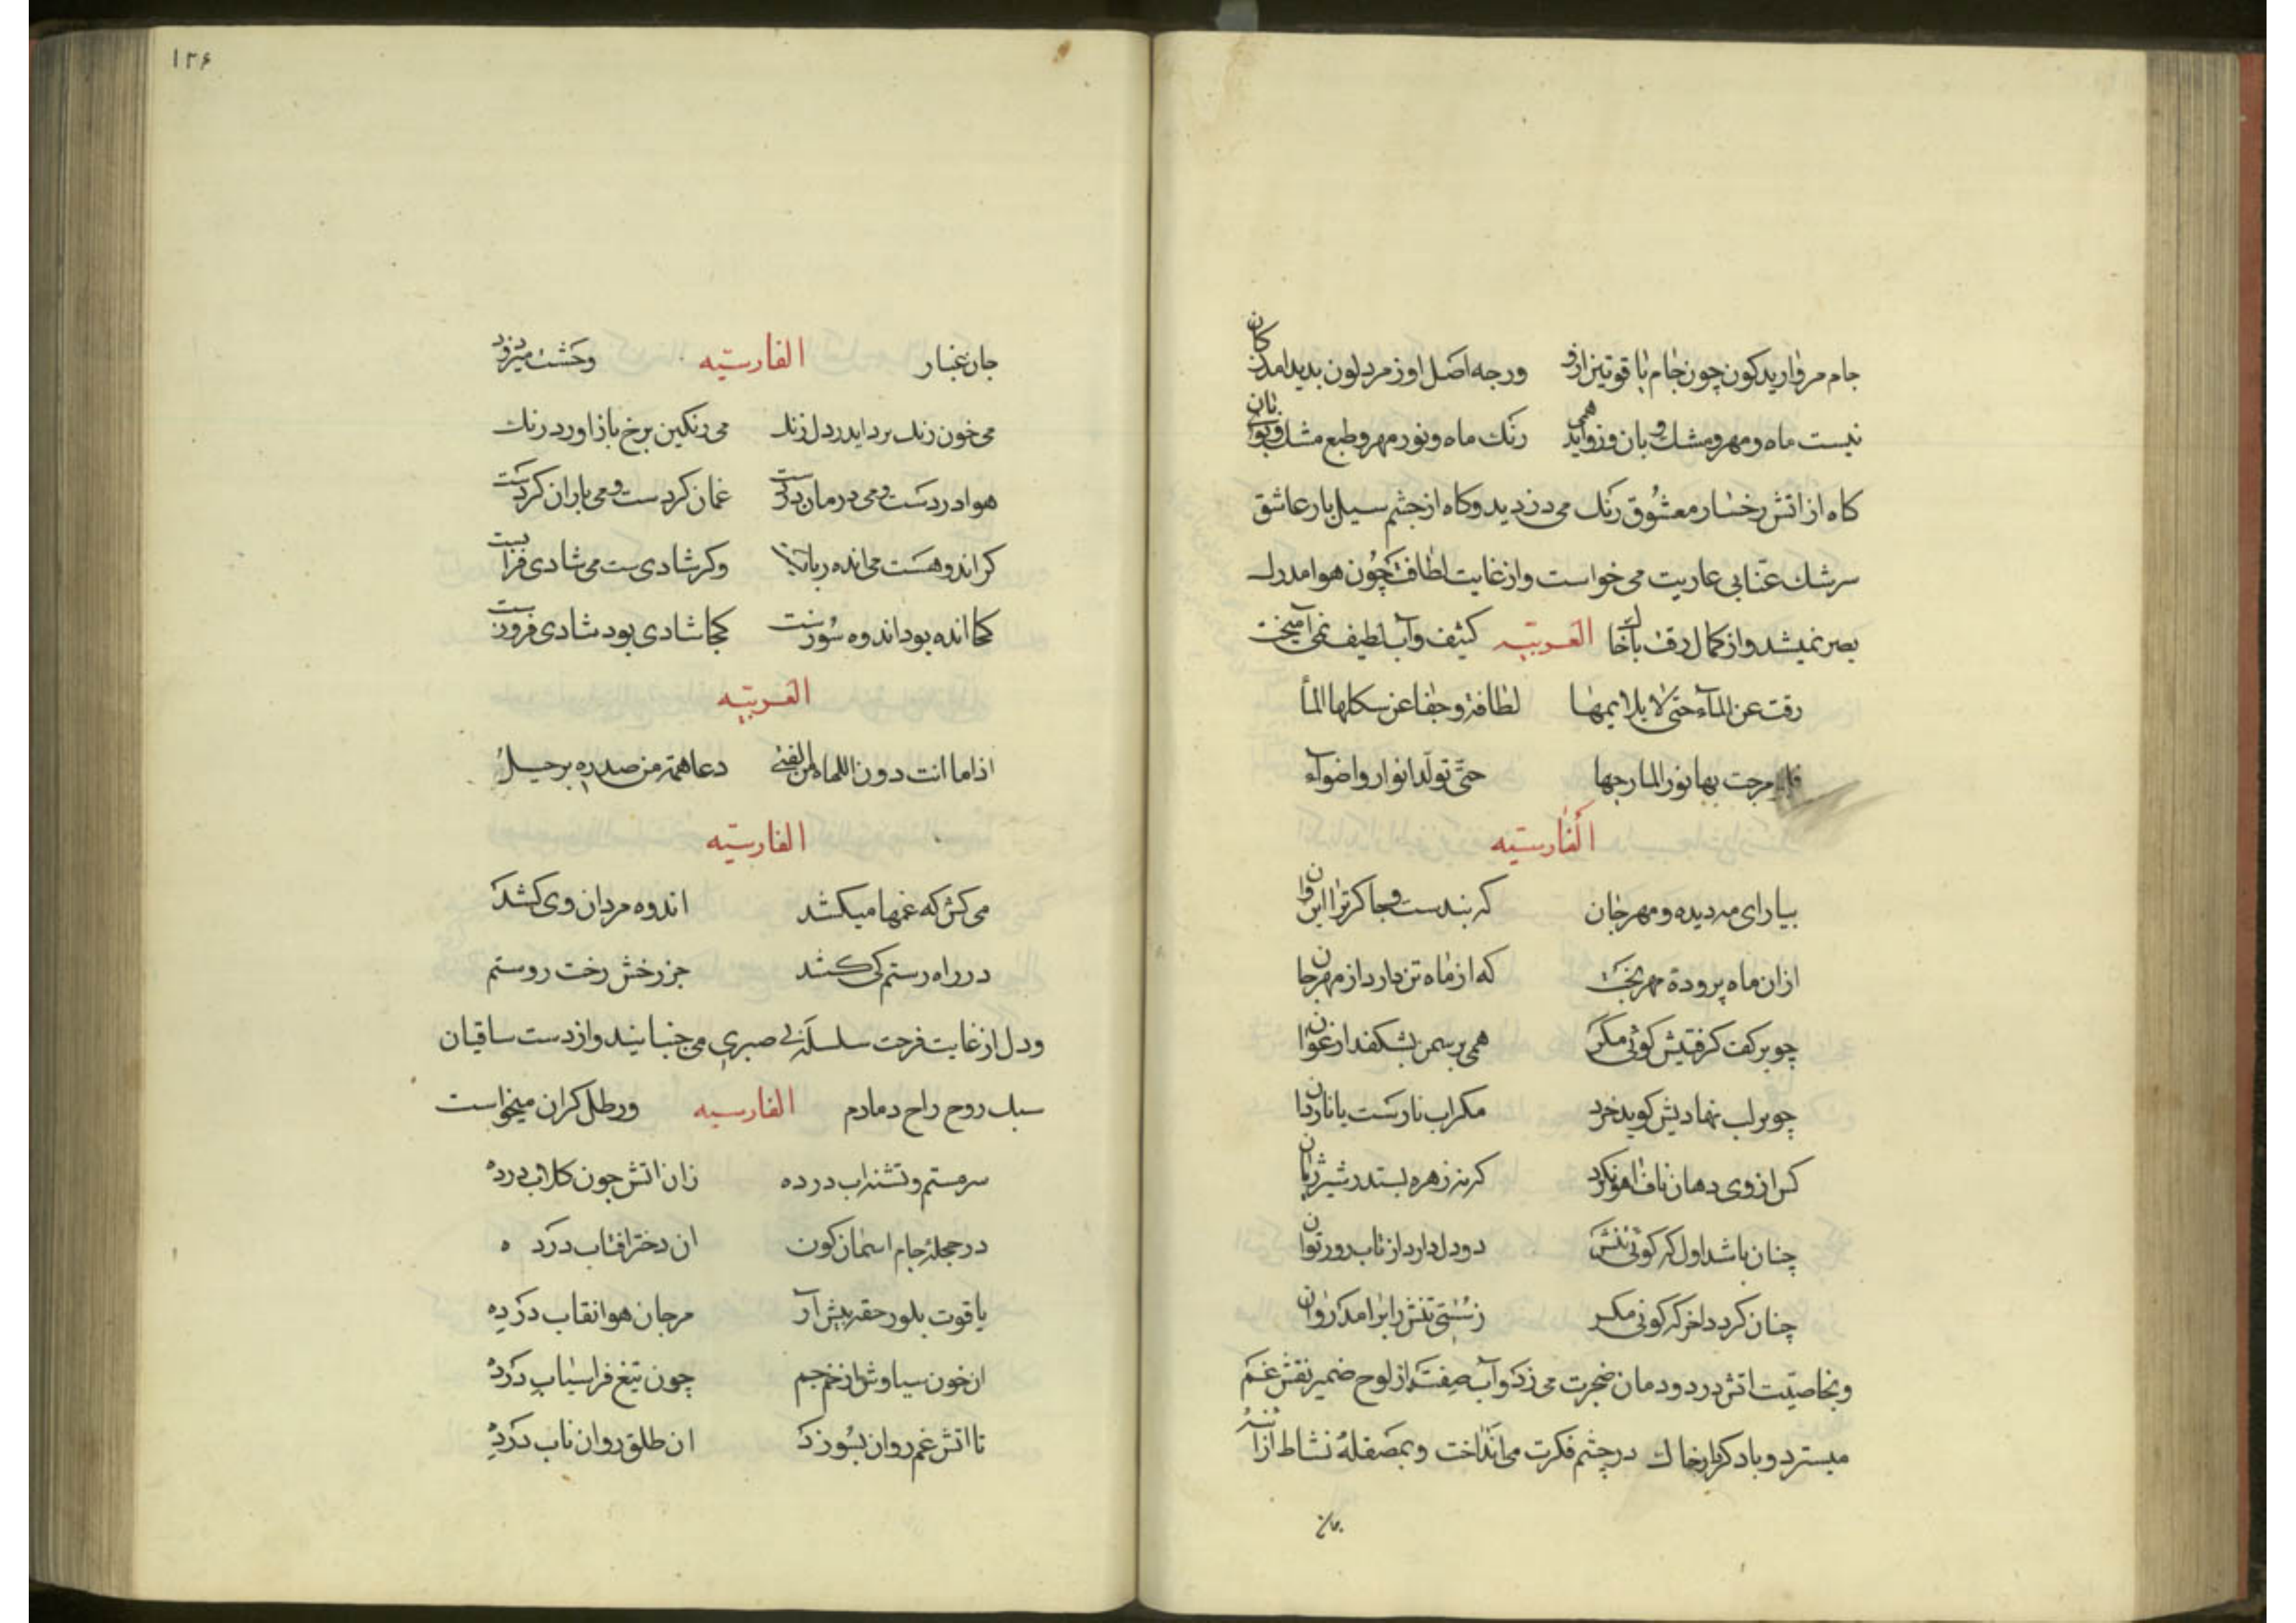 جام مروارید کون چون جام یاقوتین ازو ورجه اصل او زمرد لون بدید امد زکان
نیست ماه و مهر و مشک و بان وزو اید همی رنک ماه و نور مهر و طبع مشک و بوی بان
کاه از اتش رخسار معشوق رنک می دزدید وکاه از چشم سیل بار عاشق
سرشک عنابی عاریت می خواست واز غایت لطافت چون هوا مدرک
بصر نمیشد واز کمال رقت با خاک العربیه کثیف وآب لطیف نمی آمیخت
رقت عن المآء حتی لا یلایمها لطافة وجفا عن سکلها المآ
مزجت بها نور المارجها حتی تولد انوار واضوآء
الفارسیه
بیار ای مه دیده و مهر جان که بندست وجاکر ترا این وان
ازان ماه پرودهٔ مهر بخت که از ماه تن دارد از مهر جان
چو بر کفت کرفتیش کوئی مکر همی بر سمن بشکفد ارغوان
چو بر لب نهادیش کوید خرد مکر اب نارست یا ناردان
کر از وی دهان ناف اهو نکرد کر نه زهره بستد ز شیر ژیان
چنان باشد اول که کوئی تنش دو دل دارد از تاب و زور توان
چنان کردد اخر که کوئی مکر ز سستی تنش را برامد روان
وبخاصیت اتش در دودمان ضجرت می زد وآب صفت از لوح ضمیر نقش غم
میسترد وباد کردار خاک در چشم فکرت می انداخت وبمصقلهٔ نشاط از آئنهٔ
جان
۱۳۶
جان غبار الفارسیه وحشت میزدود
می خون زنک برداید ز دل زنک می رنکین برخ باز اورد رنک
هوا دردست و می درمان دردست غمان کردست و می باران کردست
کر اندوهست می انده ربایست وکر شادی ست می شادی فزایست
کجا انده بود اندوه سوزست کجا شادی بود شادی فروزست
العربیه
اذا ما اتت دون اللهاة من الفتی دعا همه من صدره برحیل
الفارسیه
می کش که غمها میکشد اندوه مردان وی کشد
در راه رستم کی کشد جز رخش رخت روستم
ودل از غایت فرحت سلسلهٔ بی صبری می جنبانیند واز دست ساقیان
سبک روح راح دمادم الفارسیه ورطل کران میخواست
سرمستم وتشنه اب در ده زان اتش چون کلاب در ده
در حجلهٔ جام اسمان کون ان دختر افتاب در ده
یاقوت بلور حقه پیش آر مرجان هوا نقاب در ده
ان خون سیاوش از خم جم چون تیغ فراسیاب در ده
تا اتش غم روان بسوزد ان طلق روان ناب در ده